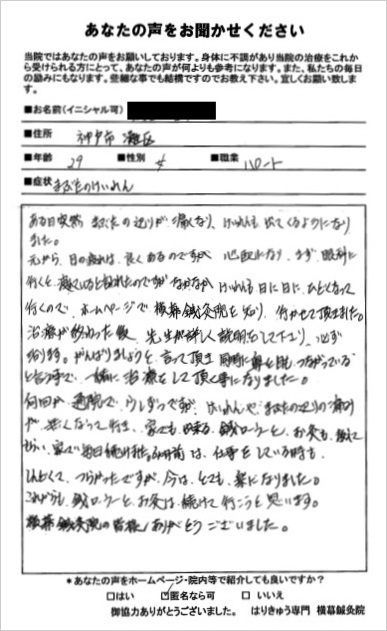 あなたの声をお聞かせください
当院ではあなたの声をお願いしております。身体に不調があり当院の治療をこれか
ら受けられる方にとって、あなたの声が何よりも参考になります。また、私たちの毎日
の励みにもなります。些細な事でも結構ですのでお教え下さい。宜しくお願い致しま
す。
■お名前(イニシャル可)
■住所 神戸市 灘区
■年齢 29 ■性別 女 ■職業 パート
■症状 まぶたのけいれん
ある日突然 まぶたの辺りが痛くなり、けいれんも出てくるようになり
ました。
元から、目の疲れは、良くあるのですが 心配になり、まず、眼科に
行くと、疲れと言われたのですが なかなか けいれんも日に日に、ひどくなって
行くので、ホームページで 横幕鍼灸院を知り、行かせて頂きました。
治療が終わった後、先生が詳しく説明をして下さり、必ず
治ります。がんばりましょうと、言って頂き 同時に鼻と目もつながっている
と言う事で、一緒に治療をして頂く事になりました。
何回か通院で、少しずつですが、けいれんや、まぶたの辺りの痛み
が無くなって行き、家でも出来る、鍼ローラーと、お灸も、教えて
もらい、家で毎日続けました。 前は、仕事をしている時も、
しんどくて、つらかったですが、今は、とても、楽になりました。
これからも、鍼ローラーと、お灸は、続けて行こうと思います。
横幕鍼灸院の皆様、ありがとうございました。
*あなたの声をホームページ・院内等で紹介しても良いですか?
□はい ☑匿名なら可 □いいえ
御協力ありがとうございました。 はりきゅう専門 横幕鍼灸院